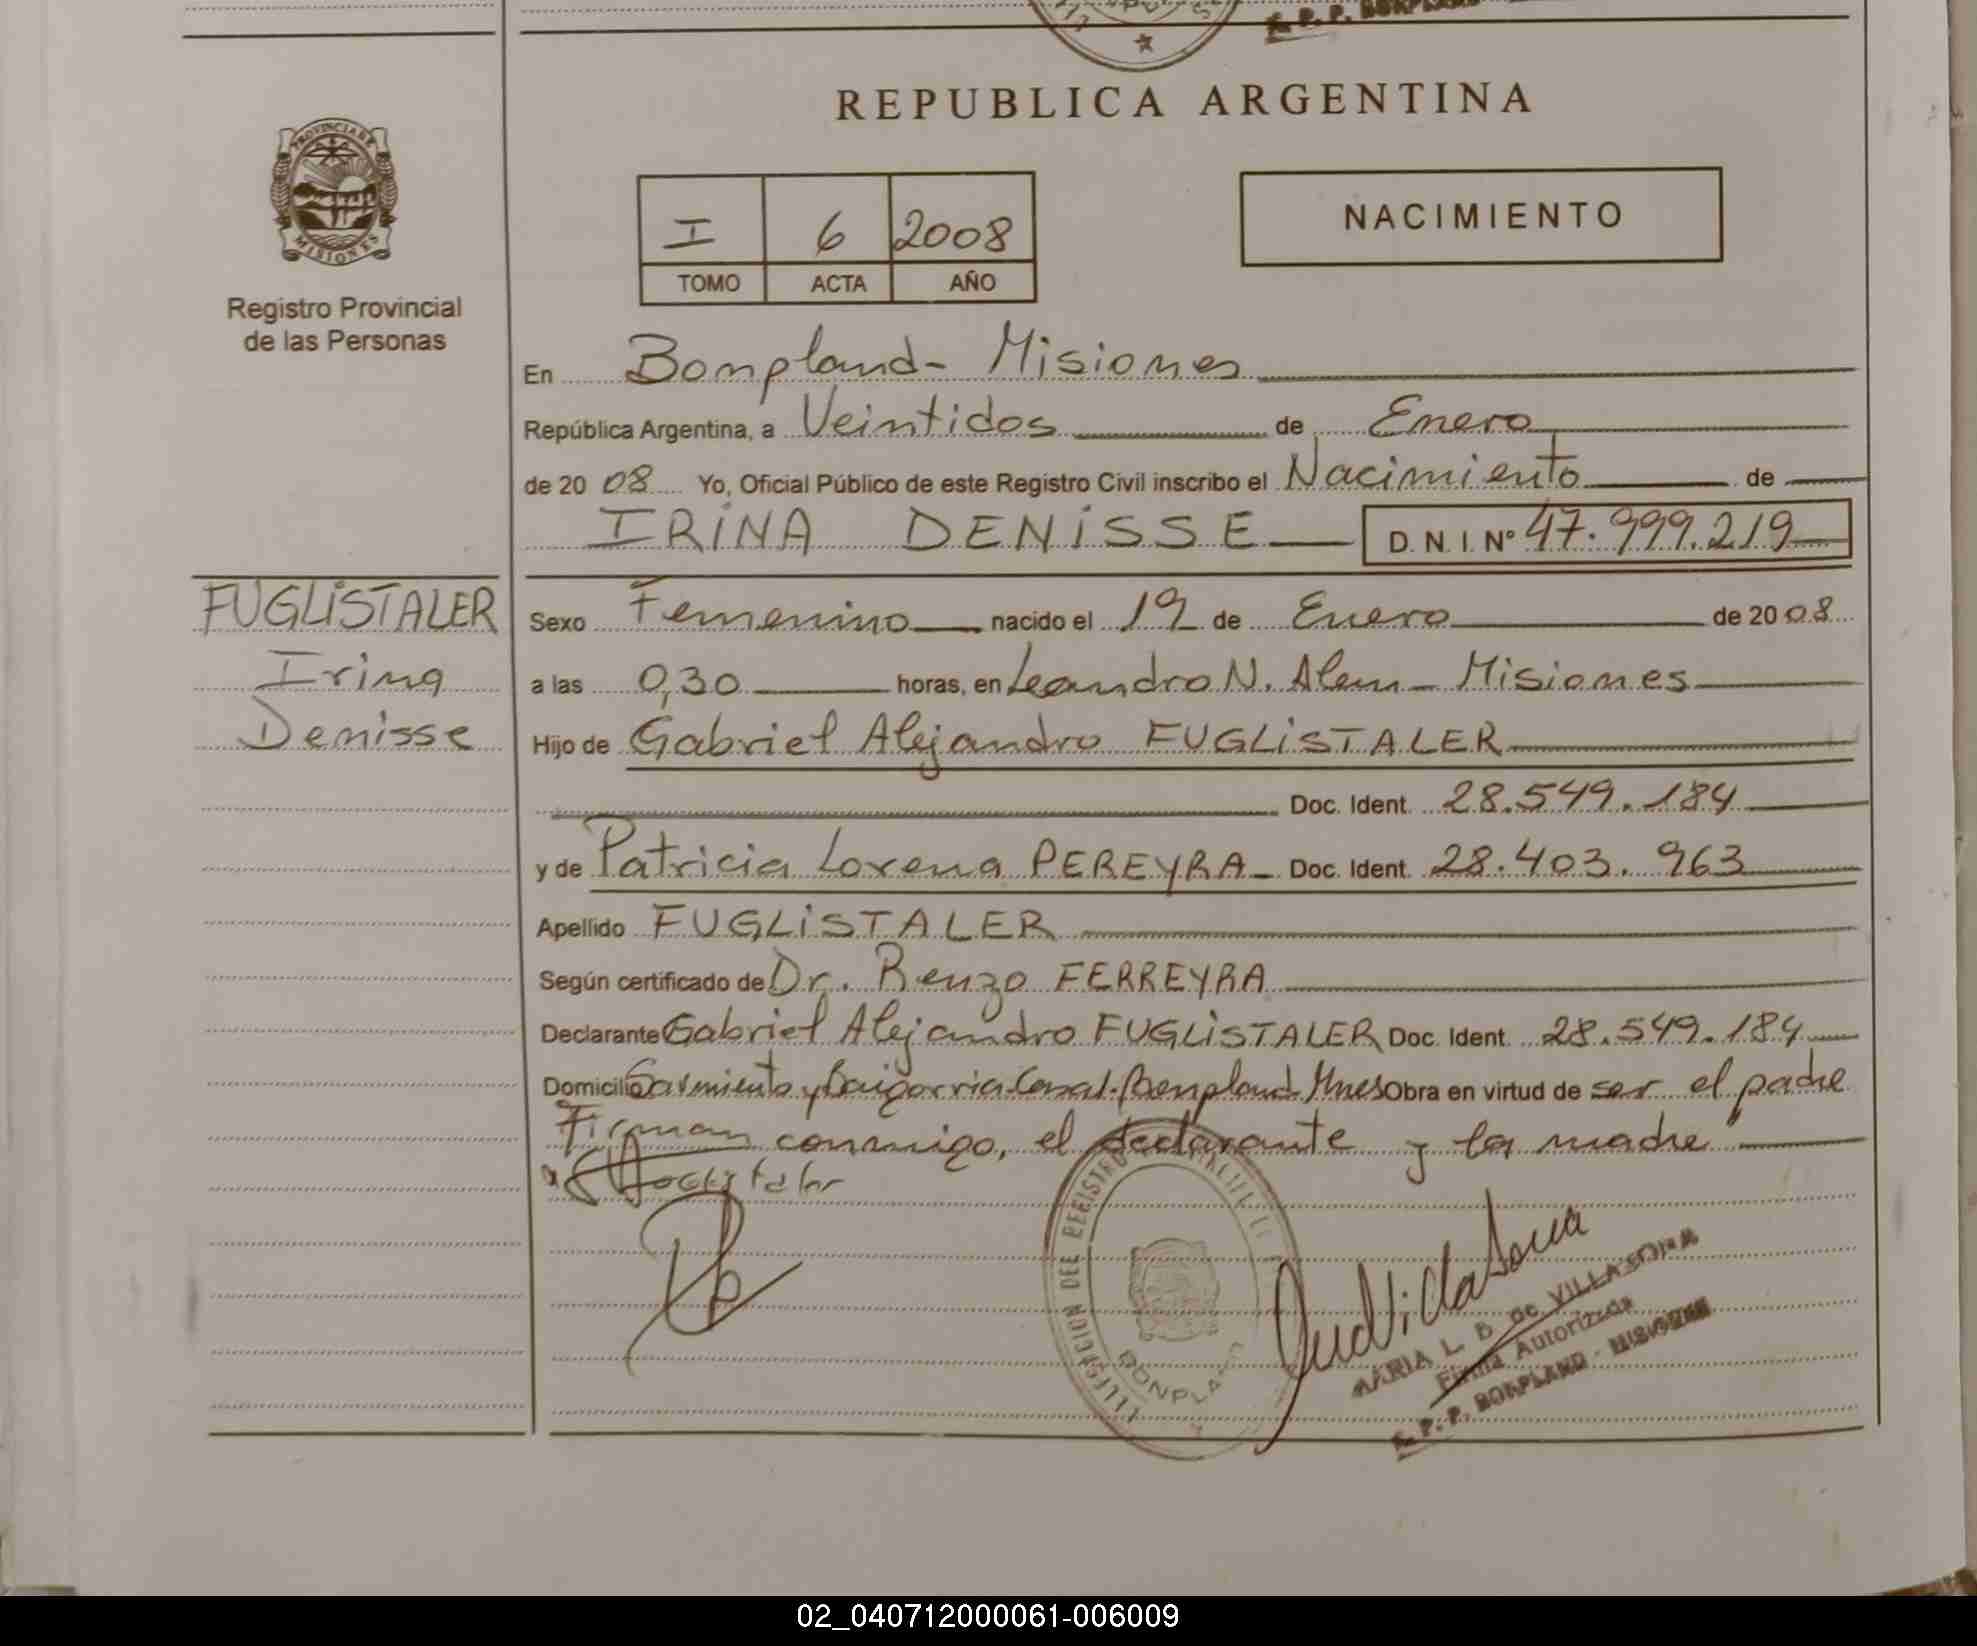 R. P. P. BONPLAND
REPUBLICA ARGENTINA
PROVINCIA DE
MISIONES
Registro Provincial
de las Personas
I 6 2008
TOMO ACTA AÑO
NACIMIENTO
En Bompland - Misiones
República Argentina, a Veintidos de Enero
de 20 08 Yo, Oficial Público de este Registro Civil inscribo el Nacimiento de
IRINA DENISSE D. N. I. Nº 47.999.219
FUGLISTALER
Irina
Denisse
Sexo Femenino nacido el 19 de Enero de 20 08
a las 0,30 horas, en Leandro N. Alem - Misiones
Hijo de Gabriel Alejandro FUGLISTALER
Doc. Ident. 28.549.184
y de Patricia Lorena PEREYRA - Doc. Ident. 28.403.963
Apellido FUGLISTALER
Según certificado de Dr. Renzo FERREYRA
Declarante Gabriel Alejandro FUGLISTALER Doc. Ident. 28.549.184
Domicilio Sarmiento y Baigorria-Casa1-Bonpland-Mnes Obra en virtud de ser el padre
Firman conmigo, el declarante y la madre
DEL REGISTRO
BONPLAND
MARIA L. B. de VILLASORIA
Firma Autorizada
R. P. P. BONPLAND - MISIONES
02_040712000061-006009